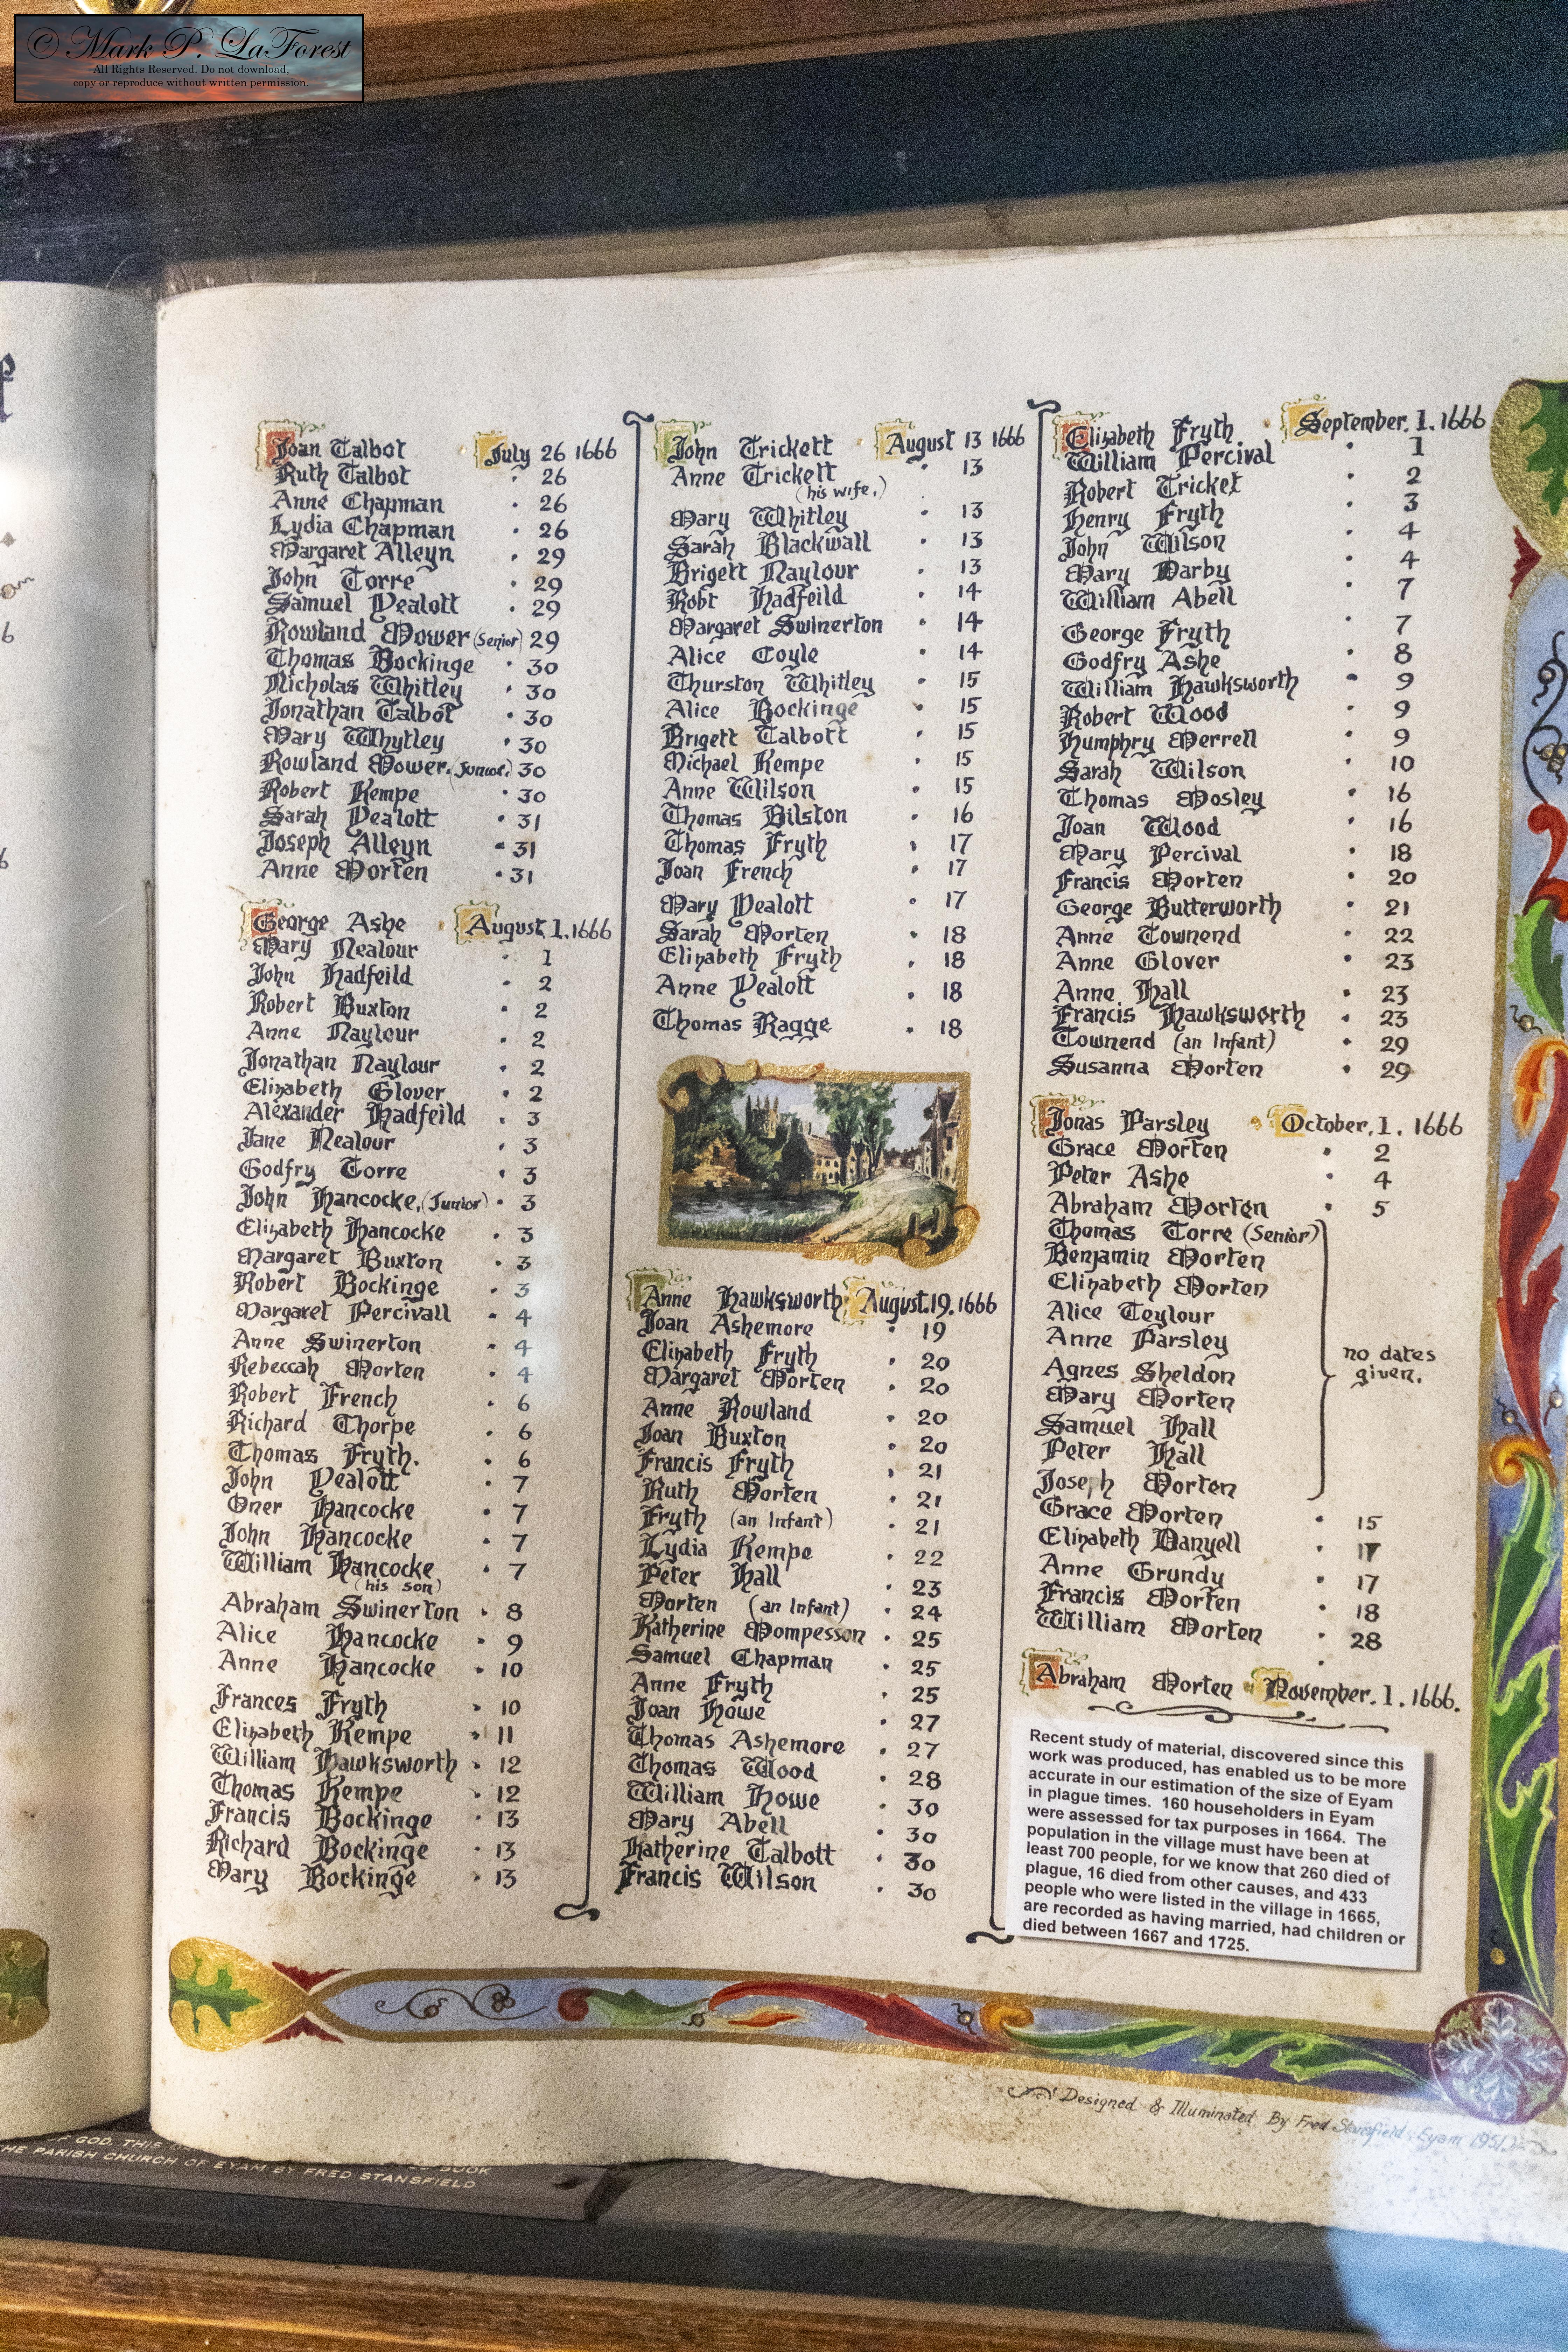 © Mark P. LaForest
All Rights Reserved. Do not download,
copy or reproduce without written permission.
Joan Talbot July 26 1666
Ruth Talbot 26
Anne Chapman 26
Lydia Chapman 26
Margaret Alleyn 29
John Torre 29
Samuel Vealott 29
Rowland Mower (Senior) 29
Thomas Bockinge 30
Nicholas Whitley 30
Jonathan Talbot 30
Mary Whytley 30
Rowland Mower. (Junior.) 30
Robert Kempe 30
Sarah Vealott 31
Joseph Alleyn 31
Anne Morten 31
George Ashe August 1. 1666
Mary Nealour 1
John Hadfeild 2
Robert Buxton 2
Anne Naylour 2
Jonathan Naylour 2
Elizabeth Glover 2
Alexander Hadfeild 3
Jane Nealour 3
Godfry Torre 3
John Hancocke, (Junior) 3
Elizabeth Hancocke 3
Margaret Buxton 3
Robert Bockinge 3
Margaret Percivall 4
Anne Swinerton 4
Rebeccah Morten 4
Robert French 6
Richard Thorpe 6
Thomas Fryth. 6
John Vealott 7
Oner Hancocke 7
John Hancocke 7
William Hancocke 7
(his son)
Abraham Swinerton 8
Alice Hancocke 9
Anne Hancocke 10
Frances Fryth 10
Elizabeth Kempe 11
William Hawksworth 12
Thomas Kempe 12
Francis Bockinge 13
Richard Bockinge 13
Mary Bockinge 13
John Trickett August 13 1666
Anne Trickett 13
(his wife.)
Mary Whitley 13
Sarah Blackwall 13
Brigett Naylour 13
Robt Hadfeild 14
Margaret Swinerton 14
Alice Coyle 14
Thurston Whitley 15
Alice Bockinge 15
Brigett Talbott 15
Michael Kempe 15
Anne Wilson 15
Thomas Bilston 16
Thomas Fryth 17
Joan French 17
Mary Vealott 17
Sarah Morten 18
Elizabeth Fryth 18
Anne Vealott 18
Thomas Ragge 18
Anne Hawksworth August. 19. 1666
Joan Ashemore 19
Elizabeth Fryth 20
Margaret Morten 20
Anne Rowland 20
Joan Buxton 20
Francis Fryth 21
Ruth Morten 21
Fryth (an Infant) 21
Lydia Kempe 22
Peter Hall 23
Morten (an Infant) 24
Katherine Mompesson 25
Samuel Chapman 25
Anne Fryth 25
Joan Howe 27
Thomas Ashemore 27
Thomas Wood 28
William Howe 30
Mary Abell 30
Katherine Talbott 30
Francis Wilson 30
Elizabeth Fryth September. 1. 1666
William Percival 1
Robert Tricket 2
Henry Fryth 3
John Wilson 4
Mary Darby 4
William Abell 7
George Fryth 7
Godfry Ashe 8
William Hawksworth 9
Robert Wood 9
Humphry Merrell 9
Sarah Wilson 10
Thomas Mosley 16
Joan Wood 16
Mary Percival 18
Francis Morten 20
George Butterworth 21
Anne Townend 22
Anne Glover 23
Anne Hall 23
Francis Hawksworth 23
Townend (an Infant) 29
Susanna Morten 29
Jonas Parsley October. 1. 1666
Grace Morten 2
Peter Ashe 4
Abraham Morten 5
Thomas Torre (Senior)
Benjamin Morten
Elizabeth Morten
Alice Teylour
Anne Parsley
Agnes Sheldon
Mary Morten
Samuel Hall
Peter Hall
Joseph Morten
no dates
given.
Grace Morten 15
Elizabeth Danyell 17
Anne Grundy 17
Francis Morten 18
William Morten 28
Abraham Morten November. 1. 1666.
Recent study of material, discovered since this
work was produced, has enabled us to be more
accurate in our estimation of the size of Eyam
in plague times. 160 householders in Eyam
were assessed for tax purposes in 1664. The
population in the village must have been at
least 700 people, for we know that 260 died of
plague, 16 died from other causes, and 433
people who were listed in the village in 1665,
are recorded as having married, had children or
died between 1667 and 1725.
Designed & Illuminated By Fred Stansfield. Eyam 1951.
OF GOD. THIS BOOK
THE PARISH CHURCH OF EYAM BY FRED STANSFIELD